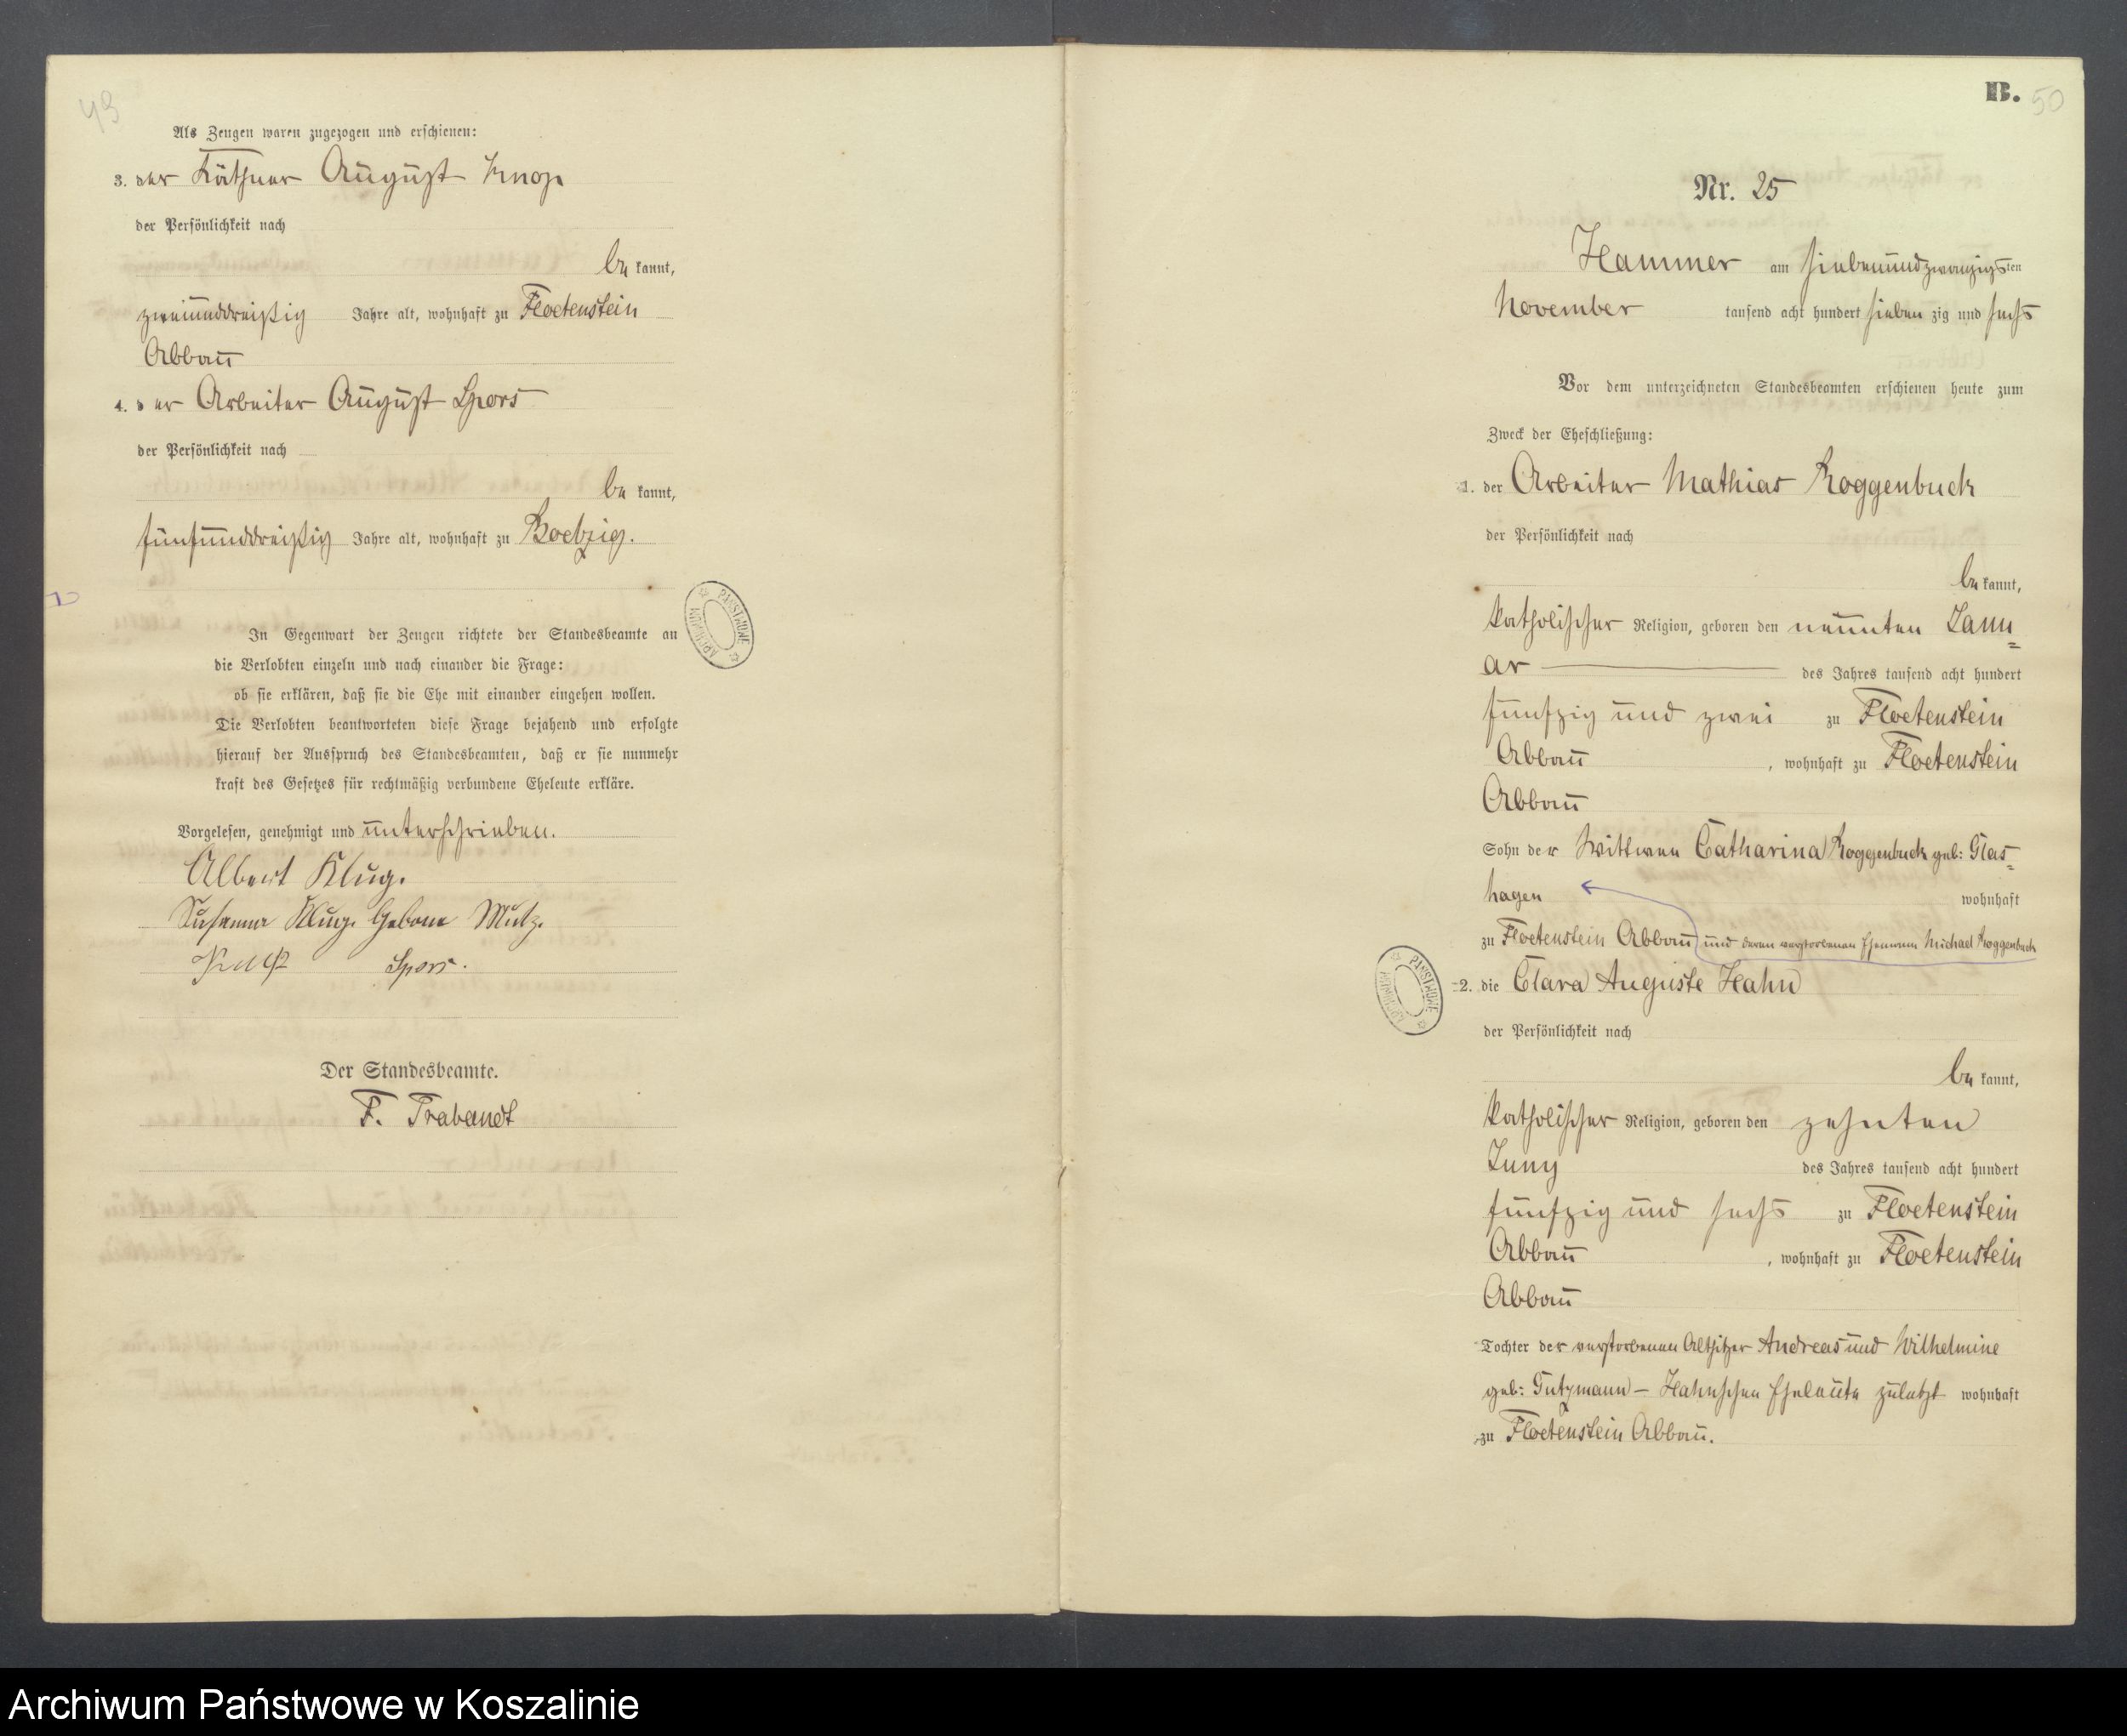 49
Als Zeugen waren zugezogen und erschienen:
3. der Käthner August Knop
der Persönlichkeit nach
be kannt,
zweiunddreißig Jahre alt, wohnhaft zu Floetenstein
Abbau
4. der Arbeiter August Spors
der Persönlichkeit nach
be kannt,
fünfunddreißig Jahre alt, wohnhaft zu Boetzig.
In Gegenwart der Zeugen richtete der Standesbeamte an
die Verlobten einzeln und nach einander die Frage:
ob sie erklären, daß sie die Ehe mit einander eingehen wollen.
Die Verlobten beantworteten diese Frage bejahend und erfolgte
hierauf der Ausspruch des Standesbeamten, daß er sie nunmehr
kraft des Gesetzes für rechtmäßig verbundene Eheleute erkläre.
Vorgelesen, genehmigt und unterschrieben.
Albert Klug.
Susanna Klug. Geborne Mutz.
Knop Spors.
Der Standesbeamte.
F. Trabandt
ARCHIWUM PAŃSTWOWE
B. 50
Nr. 25
Hammer am siebenundzwanzigsten
November tausend acht hundert sieben zig und sechs
Vor dem unterzeichneten Standesbeamten erschienen heute zum
Zweck der Eheschließung:
1. der Arbeiter Mathias Roggenbuck
der Persönlichkeit nach
be kannt,
katholischer Religion, geboren den neunten Janu=
ar des Jahres tausend acht hundert
fünfzig und zwei zu Floetenstein
Abbau , wohnhaft zu Floetenstein
Abbau
Sohn der Wittwee Catharina Roggenbuck geb: Glas=
hagen wohnhaft
zu Floetenstein Abbau und deren verstorbenen Ehemann Michael Roggenbuck
2. die Clara Auguste Hahn
der Persönlichkeit nach
be kannt,
katholischer Religion, geboren den zehnten
Juny des Jahres tausend acht hundert
fünfzig und sechs zu Floetenstein
Abbau , wohnhaft zu Floetenstein
Abbau
Tochter der verstorbenen Altsitzer Andreas und Wilhelmine
geb: Gutzmann – Hahnschen Eheleute zuletzt wohnhaft
zu Floetenstein Abbau.
ARCHIWUM PAŃSTWOWE
Archiwum Państwowe w Koszalinie